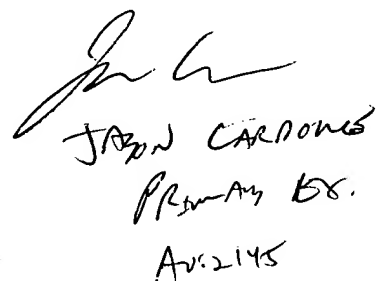 JASON CARDONE
PRIMARY EX.
AU:2145